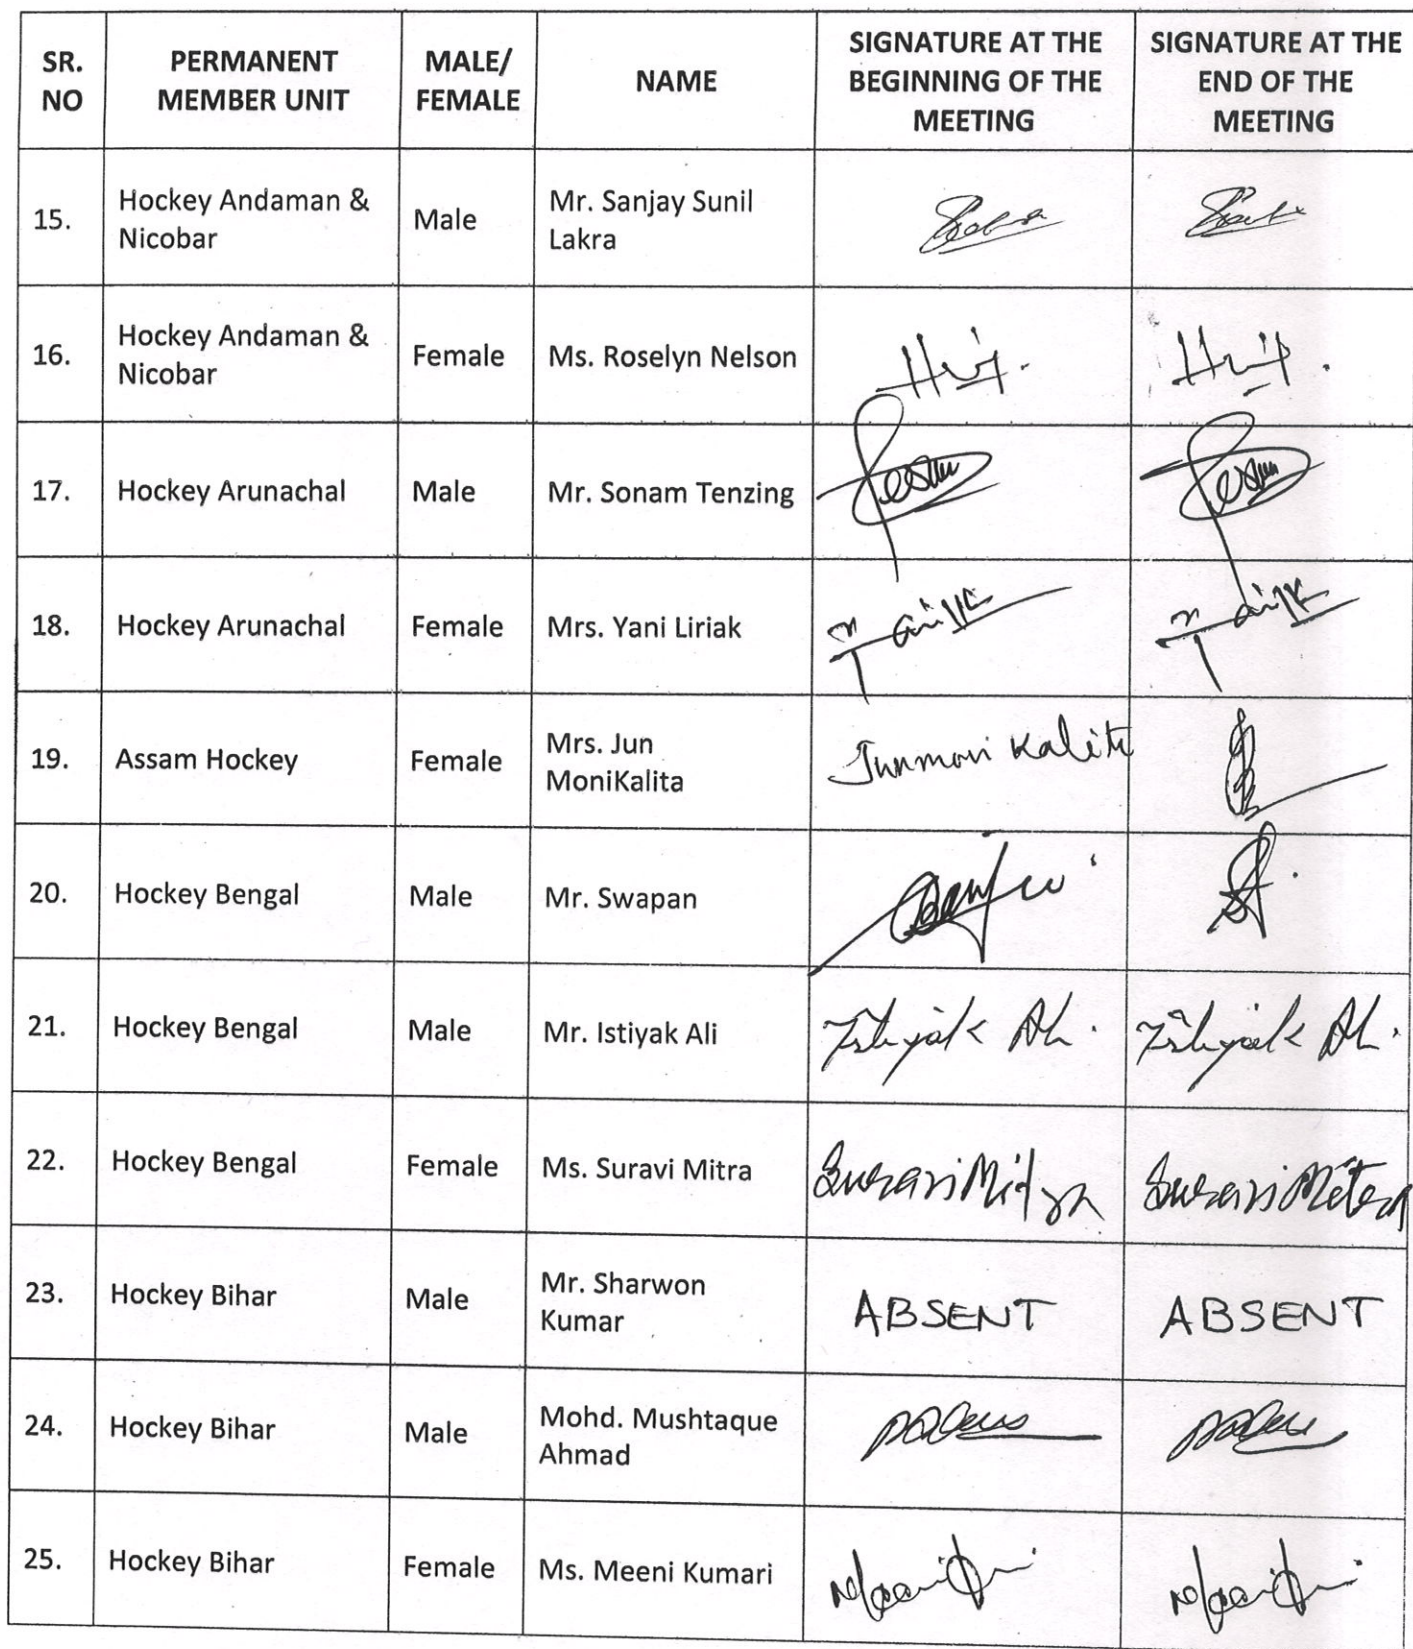 SR. NO
PERMANENT MEMBER UNIT
MALE/ FEMALE
NAME
SIGNATURE AT THE BEGINNING OF THE MEETING
SIGNATURE AT THE END OF THE MEETING
15.
Hockey Andaman &
Nicobar
Male
Mr. Sanjay Sunil
Lakra
16.
Hockey Andaman &
Nicobar
Female
Ms. Roselyn Nelson
17.
Hockey Arunachal
Male
Mr. Sonam Tenzing
18.
Hockey Arunachal
Female
Mrs. Yani Liriak
19.
Assam Hockey
Female
Mrs. Jun
MoniKalita
Junmoni Kalita
20.
Hockey Bengal
Male
Mr. Swapan
21.
Hockey Bengal
Male
Mr. Istiyak Ali
22.
Hockey Bengal
Female
Ms. Suravi Mitra
Suravi Mitra
Suravi Mitra
23.
Hockey Bihar
Male
Mr. Sharwon
Kumar
ABSENT
ABSENT
24.
Hockey Bihar
Male
Mohd. Mushtaque
Ahmad
25.
Hockey Bihar
Female
Ms. Meeni Kumari